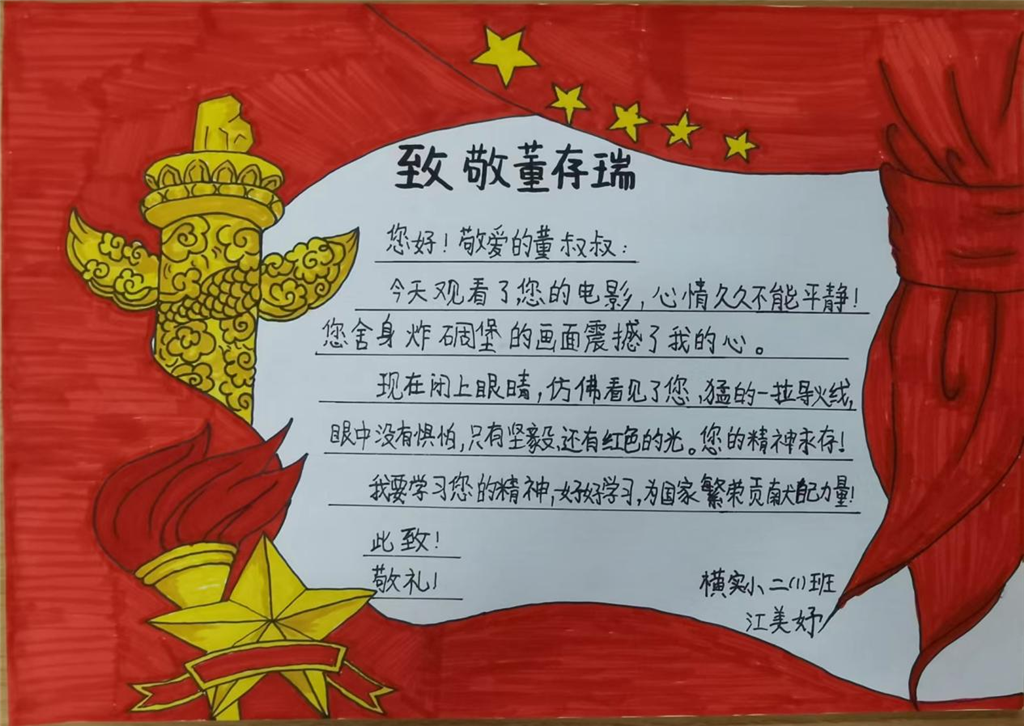 致敬董存瑞
您好！敬爱的董叔叔：
今天观看了您的电影，心情久久不能平静！
您舍身炸碉堡的画面震撼了我的心。
现在闭上眼睛，仿佛看见了您，猛的一拉导火线，
眼中没有惧怕，只有坚毅，还有红色的光。您的精神永存！
我要学习您的精神，好好学习，为国家繁荣贡献自己力量！
此致！
敬礼！
横实小二(1)班
江美妤